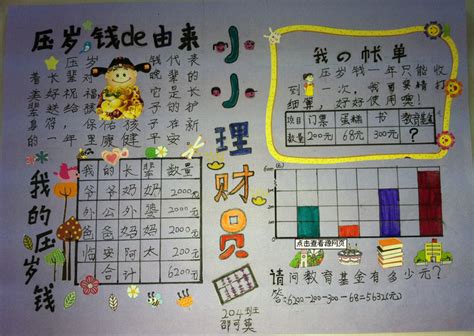 压岁钱de由来
压岁钱代表
着长辈对晚辈的
美好祝福,它是长
辈送给孩子的护
身符,保佑孩子在新
的一年里康健平安
小小理财员
我の帐单
压岁钱一年只能收
到一次,我要精打
细算,好好使用喔!
项目 门票 蛋糕 书 教育基金
数量 200元 300元 68元 ?
我的压岁钱
我的长辈 数量
爷爷奶奶 2000元
外公外婆 2000元
爸爸妈妈 2000元
临安阿太 200元
合计 6200元
点击查看源网页
请问教育基金有多少元?
答:6200-200-300-68=5632(元)
204班